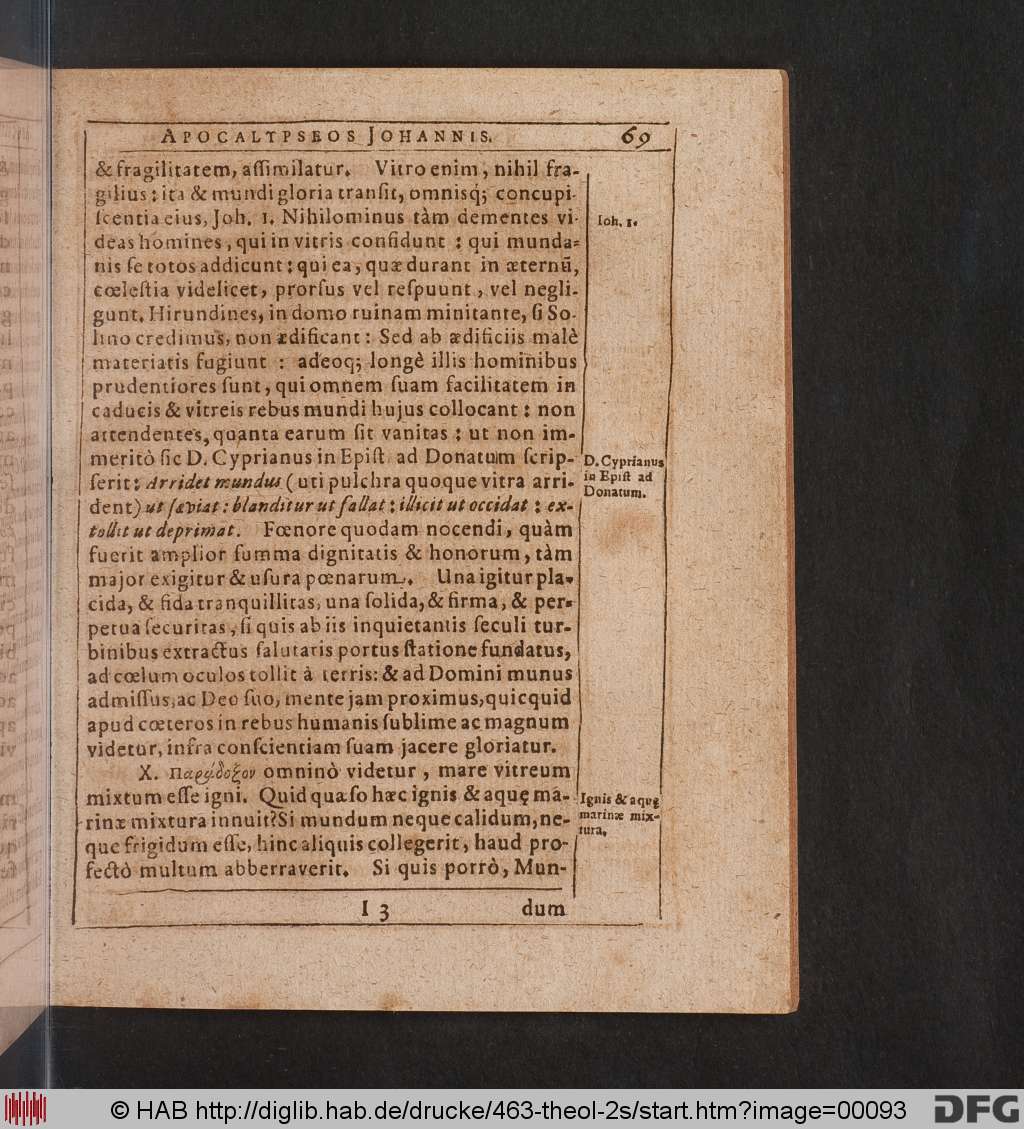 APOCALYPSEOS JOHANNIS. 69
& fragilitatem, aſſimilatur. Vitro enim, nihil fra-
gilius: ita & mundi gloria tranſit, omnisq; concupi-
ſcentia eius, Joh. 1. Nihilominus tàm dementes vi-
deas homines, qui in vitris confidunt: qui munda-
nis ſe totos addicunt: qui ea, quæ durant in æternũ,
cœleſtia videlicet, prorſus vel reſpuunt, vel negli-
gunt. Hirundines, in domo ruinam minitante, ſi So-
lino credimus, non ædificant: Sed ab ædificiis malè
materiatis fugiunt: adeoq; longè illis hominibus
prudentiores ſunt, qui omnem ſuam facilitatem in
caducis & vitreis rebus mundi hujus collocant: non
attendentes, quanta earum ſit vanitas: ut non im-
meritò ſic D. Cyprianus in Epiſt. ad Donatum ſcrip-
ſerit: Arridet mundus (uti pulchra quoque vitra arri-
dent) ut ſæviat: blanditur ut fallat: illicit ut occidat: ex-
tollit ut deprimat. Fœnore quodam nocendi, quàm
fuerit amplior ſumma dignitatis & honorum, tàm
major exigitur & uſura pœnarum. Una igitur pla-
cida, & fida tranquillitas, una ſolida, & firma, & per-
petua ſecuritas, ſi quis ab iis inquietantis ſeculi tur-
binibus extractus ſalutaris portus ſtatione fundatus,
ad cœlum oculos tollit à terris: & ad Domini munus
admiſſus, ac Deo ſuo, mente jam proximus, quicquid
apud cœteros in rebus humanis ſublime ac magnum
videtur, infra conſcientiam ſuam jacere gloriatur.
X. Παράδοξον omninò videtur, mare vitreum
mixtum eſſe igni. Quid quæſo hæc ignis & aquę ma-
rinæ mixtura innuit? Si mundum neque calidum, ne-
que frigidum eſſe, hinc aliquis collegerit, haud pro-
fectò multum abberraverit. Si quis porrò, Mun-
I 3 dum
Ioh. 1.
D. Cyprianus
in Epiſt ad
Donatum.
Ignis & aquę
marinæ mix-
tura.
© HAB http://diglib.hab.de/drucke/463-theol-2s/start.htm?image=00093 DFG